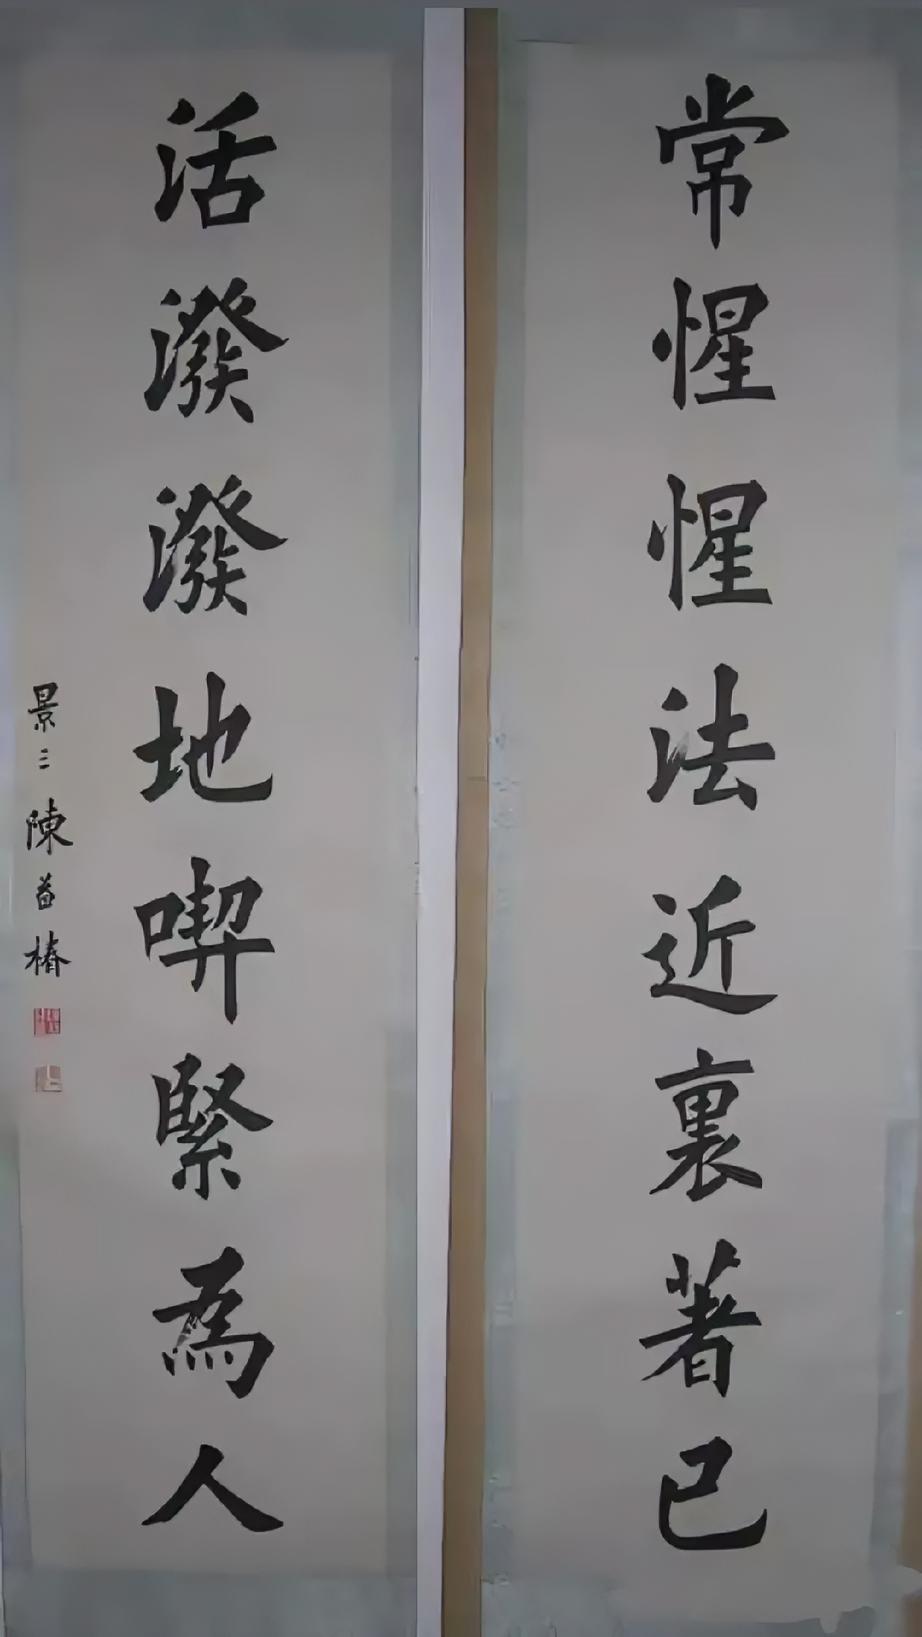 常惺惺法近裏著己
活潑潑地喫緊為人
景三陳省椿